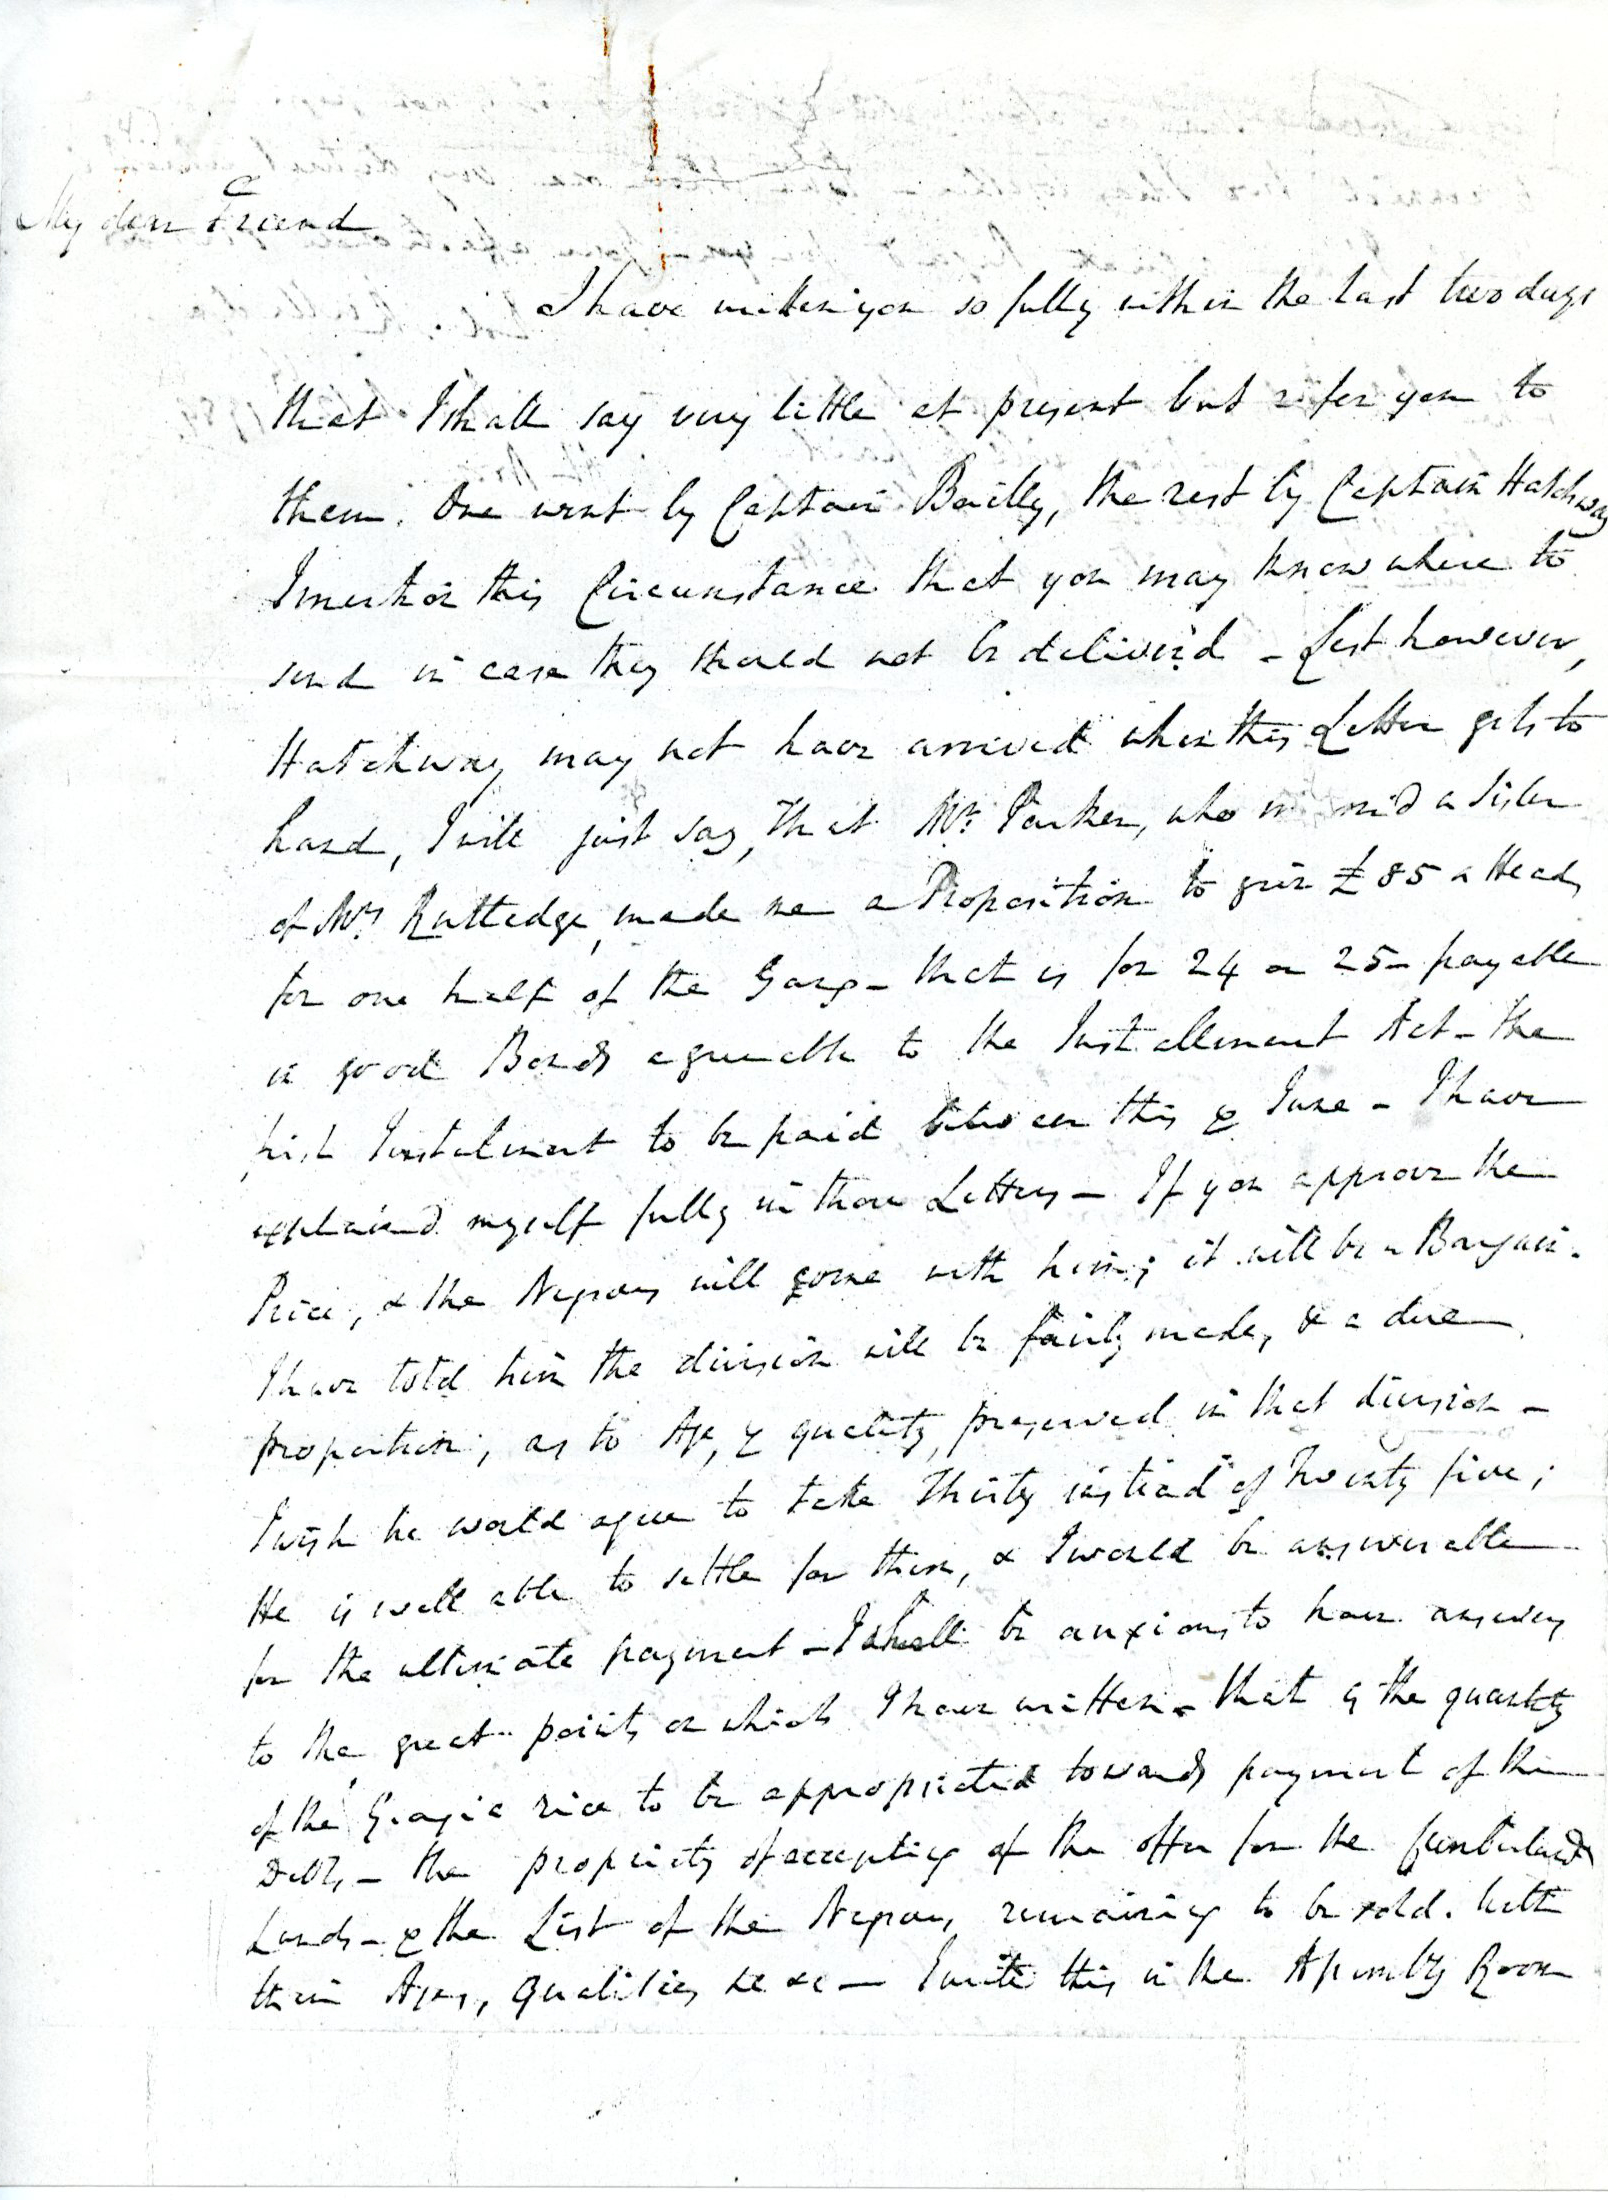 My dear Friend
I have written you so fully within the last two days
that I shall say very little at present but refer you to
them. One went by Captain Bailly, the rest by Captain Hatchway
I mention this Circumstance that you may know where to
send in case they should not be deliver'd - Lest however,
Hatchway may not have arrived when this Letter gets to
hand, I will just say, that Mr. Parker, who married a Sister
of Mrs Rutledge, made me a Proposition to give £85 a Head,
for one half of the Gang - that is for 24 or 25 - payable
in good Bonds agreeable to the Installment Act - the
first Instalment to be paid between this & June - I have
explained myself fully in those Letters - If you approve the
Price, & the Negroes will come with him; it will be a Bargain.
I have told him the division will be fairly made, & a due
proportion, as to Age, & quality, preserved in that division -
I wish he would agree to take Thirty instead of Twenty five;
He is well able to settle for them, & I would be answerable
for the ultimate payment - I shall be anxious to have answers
to the great points on which I have written - that is the quantity
of the Georgia rice to be appropriated towards payment of the
Debts, - the propriety of accepting of the offer for the Cumberland
Lands - & the List of the Negroes, remaining to be sold. with
their Ages, Qualities &c &c - I write this in the Assembly Room